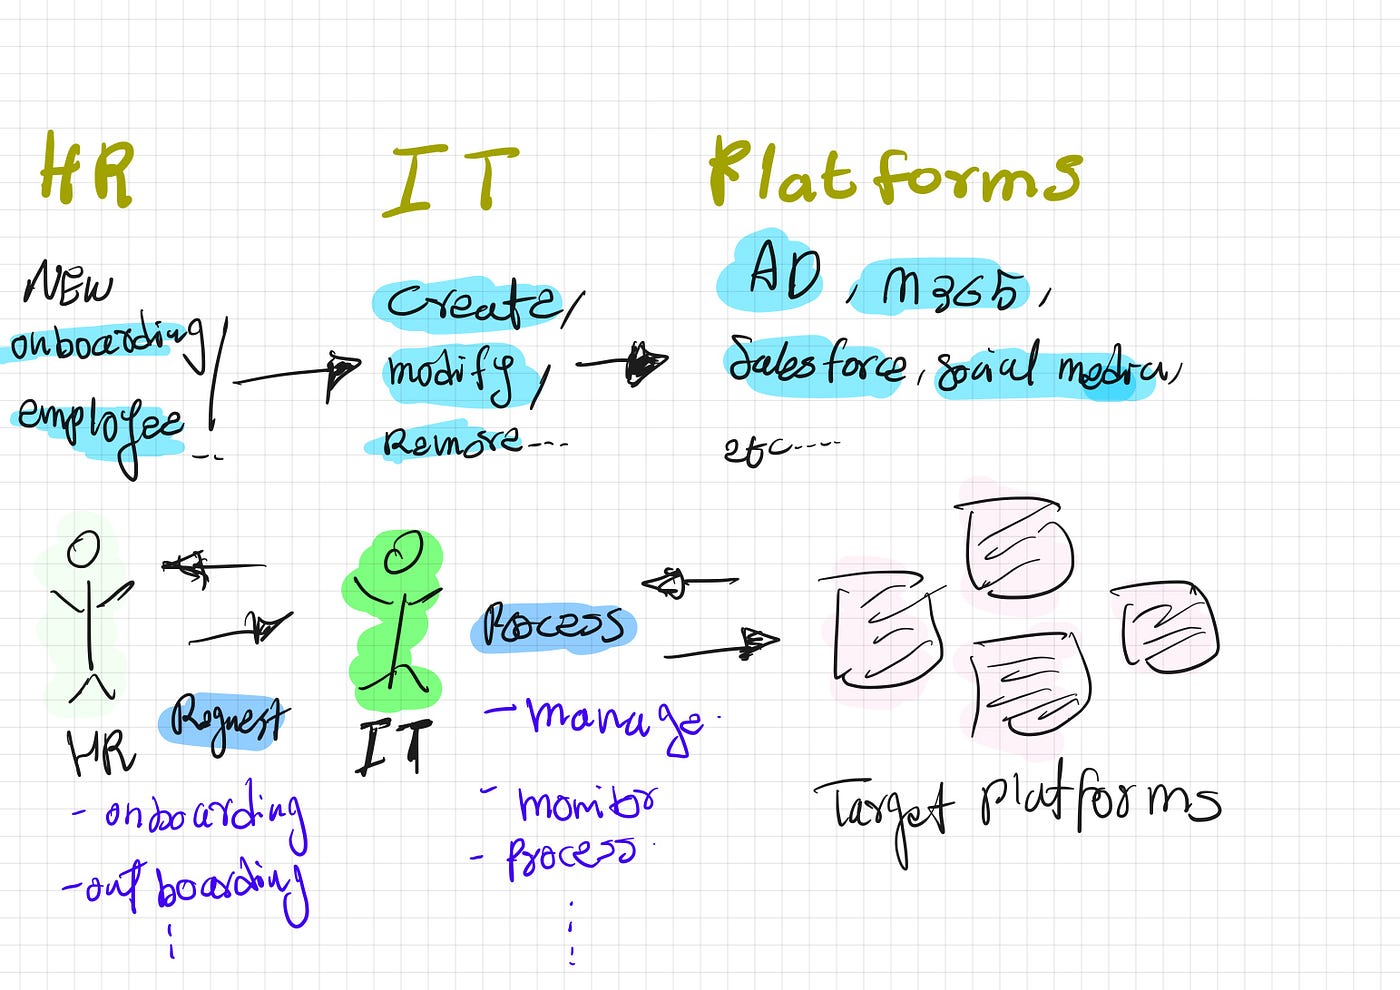 HR IT Platforms
NEW
onboarding/
employee --
Create/
modify/
Remove---
AD, M365,
Salesforce, social media,
etc----
Process
Request
HR
IT
- onboarding
- outboarding
- manage.
- monitor
- Process.
Target platforms